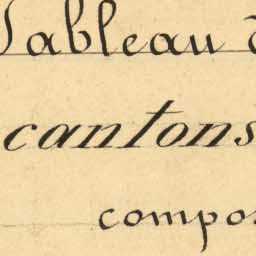 Tableau d
cantons
compos